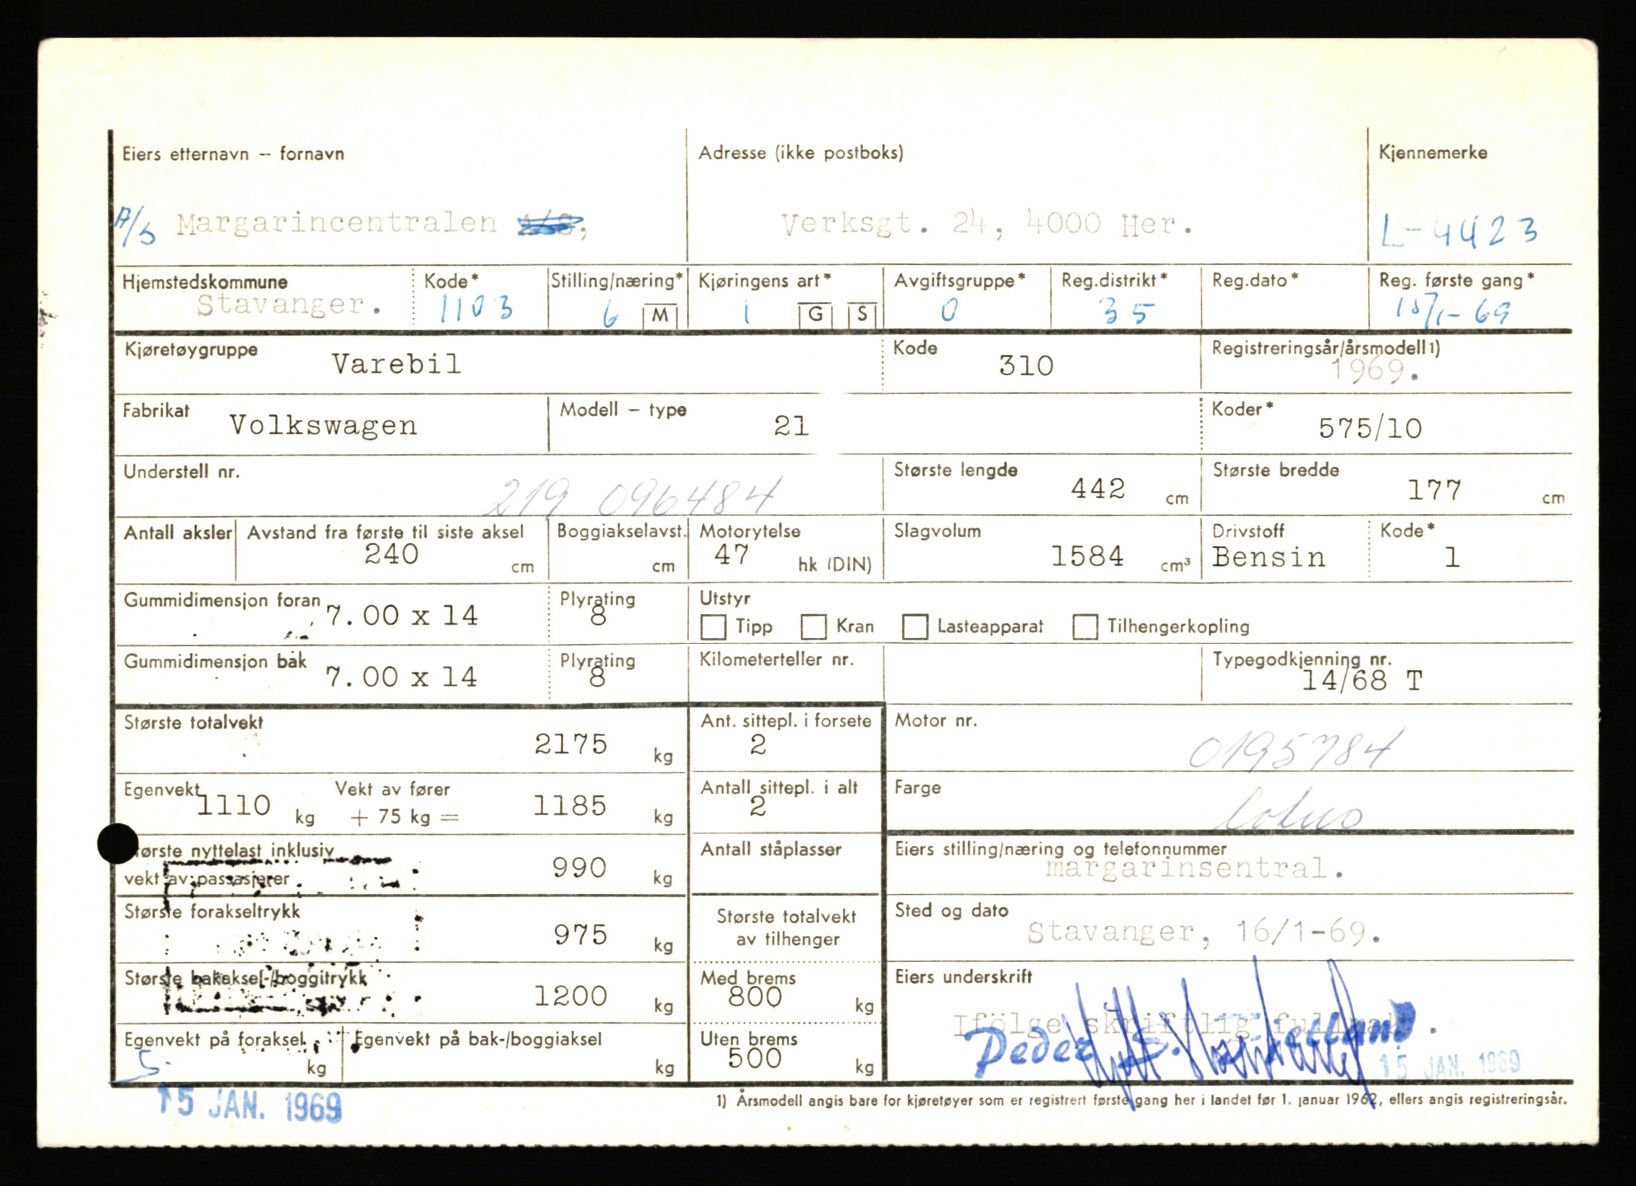 Eiers etternavn – fornavn
Adresse (ikke postboks)
Kjennemerke
A/S Margarincentralen A/S,
Verksgt. 24, 4000 Her.
L-4423
Hjemstedskommune
Kode*
Stilling/næring*
Kjøringens art*
Avgiftsgruppe*
Reg.distrikt*
Reg.dato*
Reg. første gang*
Stavanger.
1103
6 M
1 G S
0
35
15/1-69
Kjøretøygruppe Varebil
Kode 310
Registreringsår/årsmodell 1)
1969.
Fabrikat Volkswagen
Modell – type 21
Koder* 575/10
Understell nr. 219 096484
Største lengde 442 cm
Største bredde 177 cm
Antall aksler
Avstand fra første til siste aksel
240 cm
Boggiakselavst.
cm
Motorytelse
47 hk (DIN)
Slagvolum
1584 cm³
Drivstoff
Bensin
Kode*
1
Gummidimensjon foran 7.00 x 14
Plyrating
8
Utstyr
Tipp Kran Lasteapparat Tilhengerkopling
Gummidimensjon bak 7.00 x 14
Plyrating
8
Kilometerteller nr.
Typegodkjenning nr.
14/68 T
Største totalvekt
2175 kg
Ant. sittepl. i forsete
2
Motor nr.
0195784
Egenvekt 1110 kg
Vekt av fører
+ 75 kg = 1185 kg
Antall sittepl. i alt
2
Farge
lotus
Største nyttelast inklusiv
vekt av passasjerer 990 kg
Antall ståplasser
Eiers stilling/næring og telefonnummer
margarinsentral.
Største forakseltrykk
975 kg
Største totalvekt
av tilhenger
Sted og dato
Stavanger, 16/1-69.
Største bakaksel-/boggitrykk
1200 kg
Med brems
800 kg
Eiers underskrift
Ifölge skriftlig fullmakt.
Peder S.
15 JAN. 1969
Egenvekt på foraksel
kg
Egenvekt på bak-/boggiaksel
kg
Uten brems
500 kg
15 JAN. 1969
1) Årsmodell angis bare for kjøretøyer som er registrert første gang her i landet før 1. januar 1962, ellers angis registreringsår.